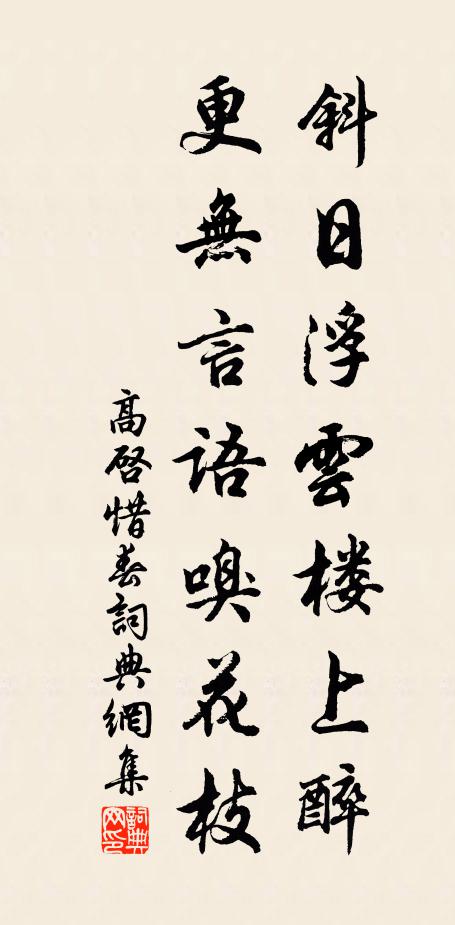 斜日浮雲楼上醉
更無言語嗅花枝
高啓惜春詞典網集
詞典网印